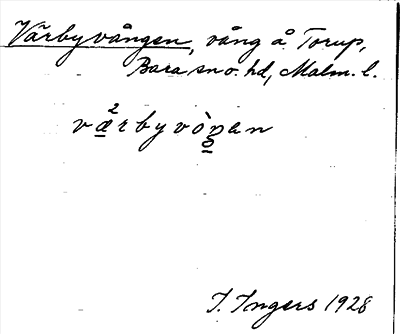 Vårbyvången, vång å Torup,
Bara sn o. hd, Malm. l.
væ²rbyvòŋen
I. Ingers 1928